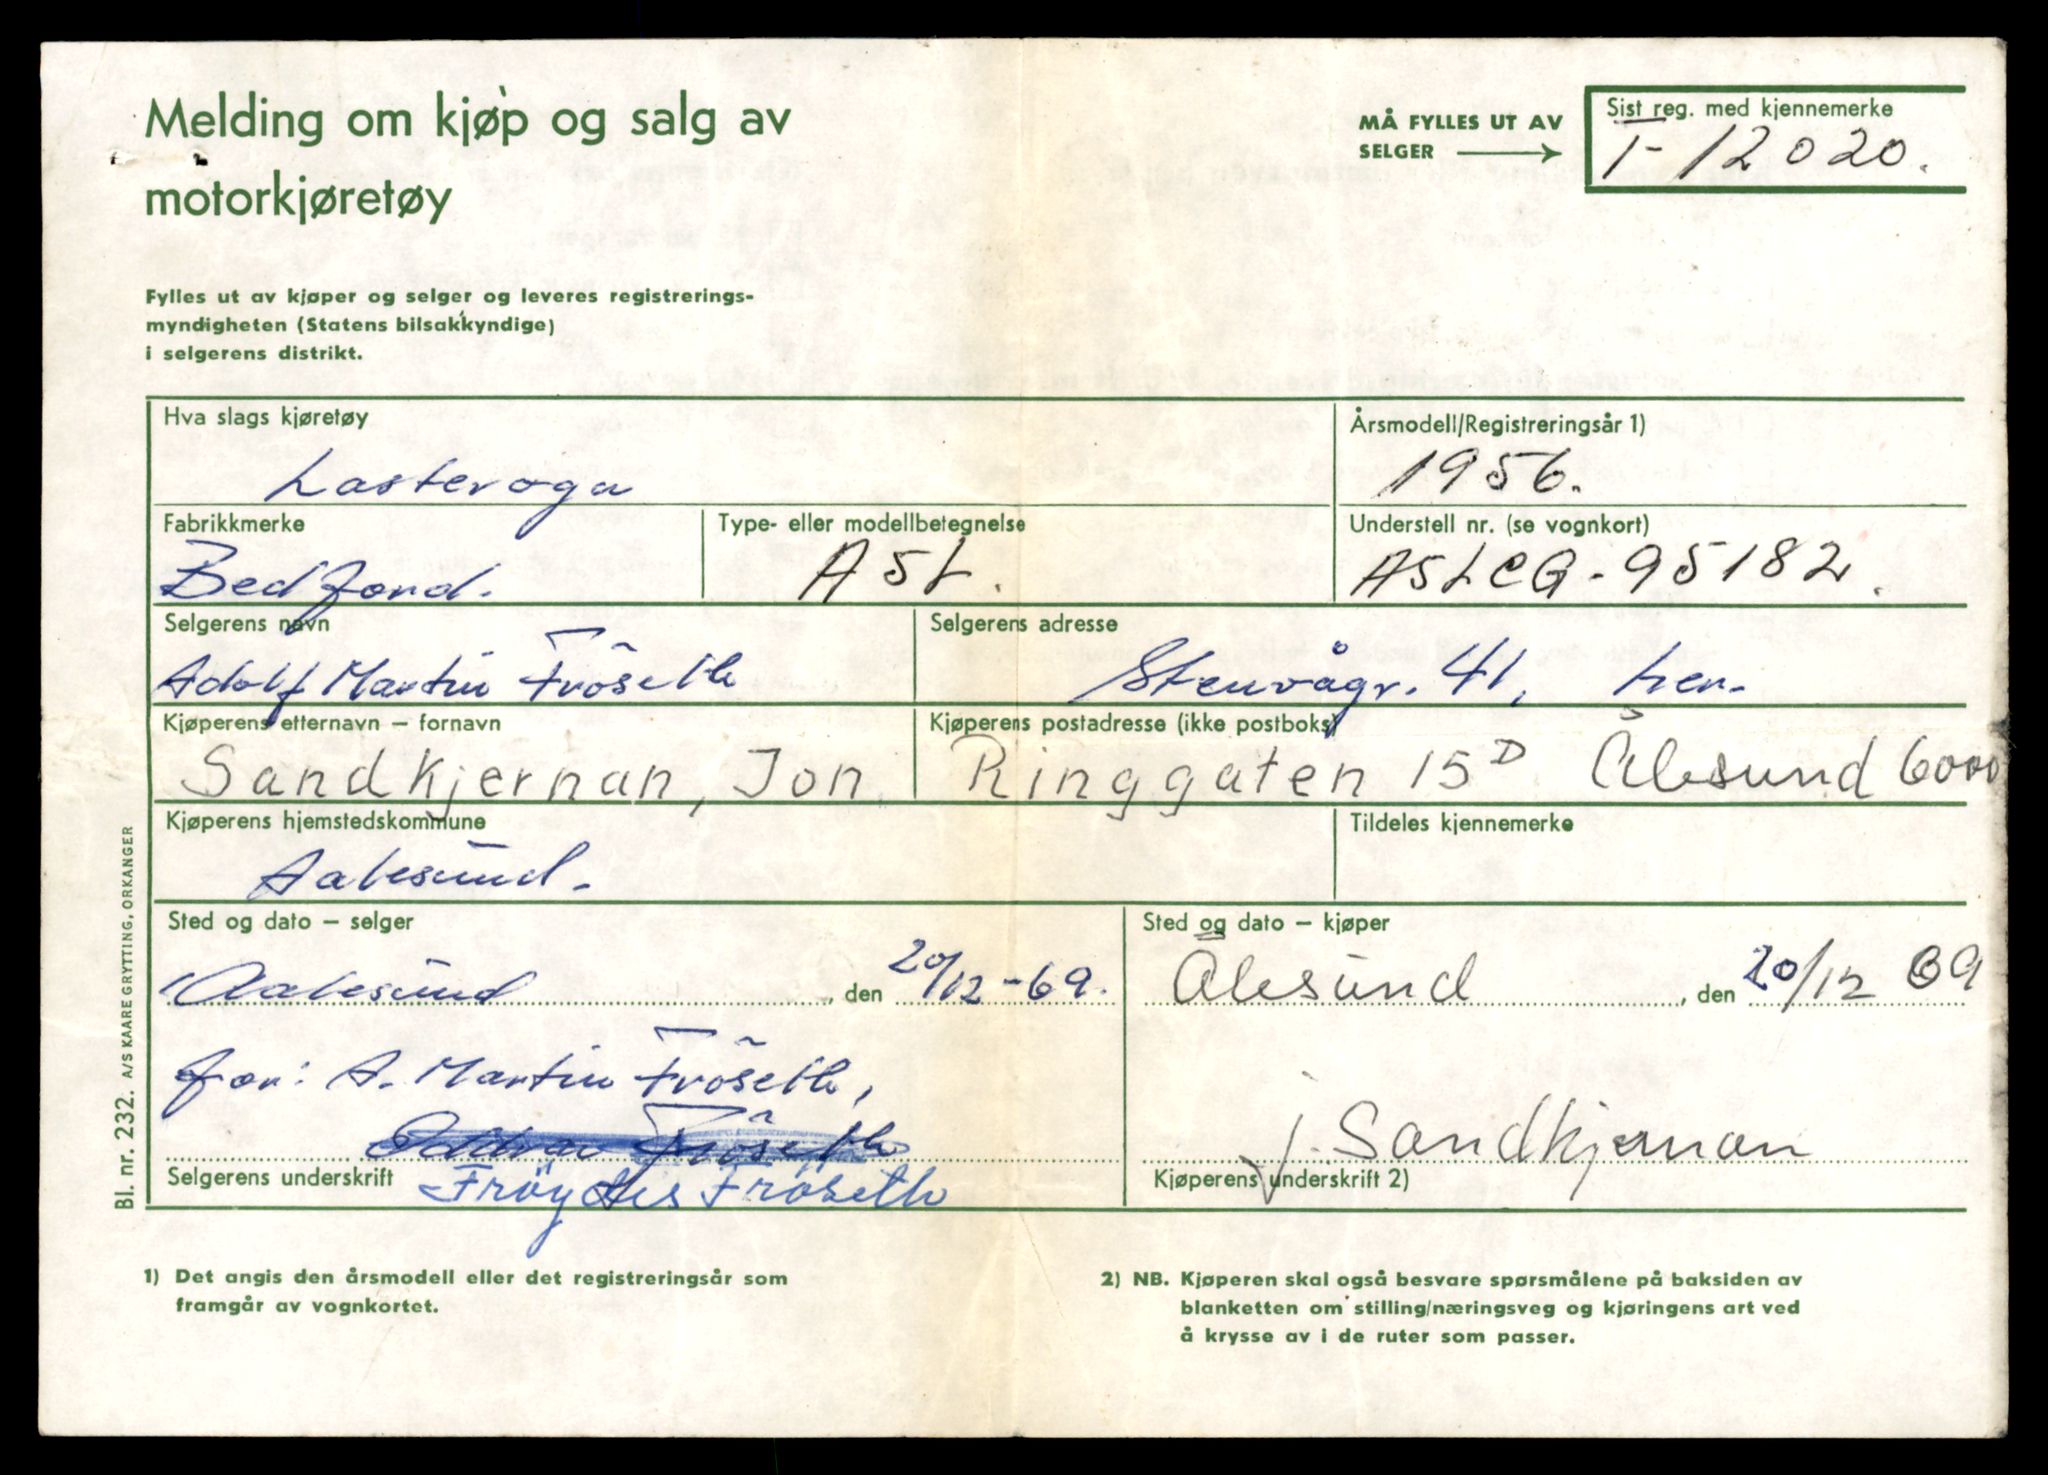 Melding om kjøp og salg av
motorkjøretøy
MÅ FYLLES UT AV
SELGER
Sist reg. med kjennemerke
T- 12020.
Fylles ut av kjøper og selger og leveres registrerings-
myndigheten (Statens bilsakkyndige)
i selgerens distrikt.
Hva slags kjøretøy
Årsmodell/Registreringsår 1)
Lastevogn
1956.
Fabrikkmerke
Type- eller modellbetegnelse
Understell nr. (se vognkort)
Bedford.
A5L.
A5LCG-95182.
Selgerens navn
Selgerens adresse
Adolf Martin Fröseth
Stenvågv. 41, her.
Kjøperens etternavn – fornavn
Kjøperens postadresse (ikke postboks)
Sandkjernan, Jon
Ringgaten 15D Ålesund 6000
Kjøperens hjemstedskommune
Tildeles kjennemerke
Aalesund.
Sted og dato – selger
Sted og dato – kjøper
Aalesund, den 20/12-69.
Ålesund, den 20/12 69
for: A. Martin Fröseth,
J. Sandkjernan
Selgerens underskrift
Fröydis Fröseth
Kjøperens underskrift 2)
Bl. nr. 232. A/S KAARE GRYTTING, ORKANGER
1) Det angis den årsmodell eller det registreringsår som
framgår av vognkortet.
2) NB. Kjøperen skal også besvare spørsmålene på baksiden av
blanketten om stilling/næringsveg og kjøringens art ved
å krysse av i de ruter som passer.